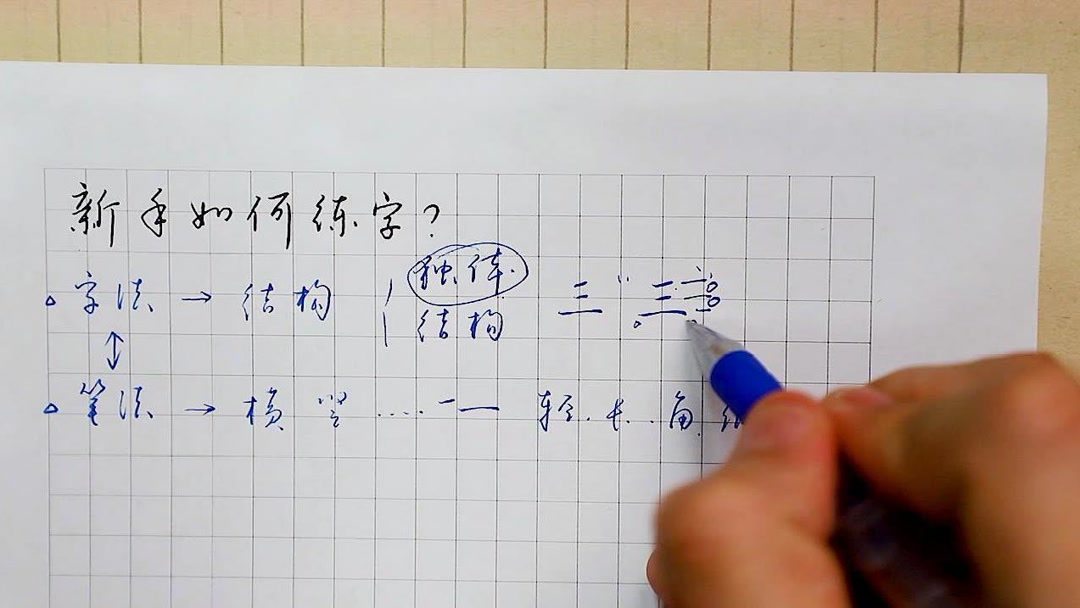 新手如何练字?
字法 → 结构 独体 三 三
结构
笔法 → 横 竖 .... 轻. 长.. 角.